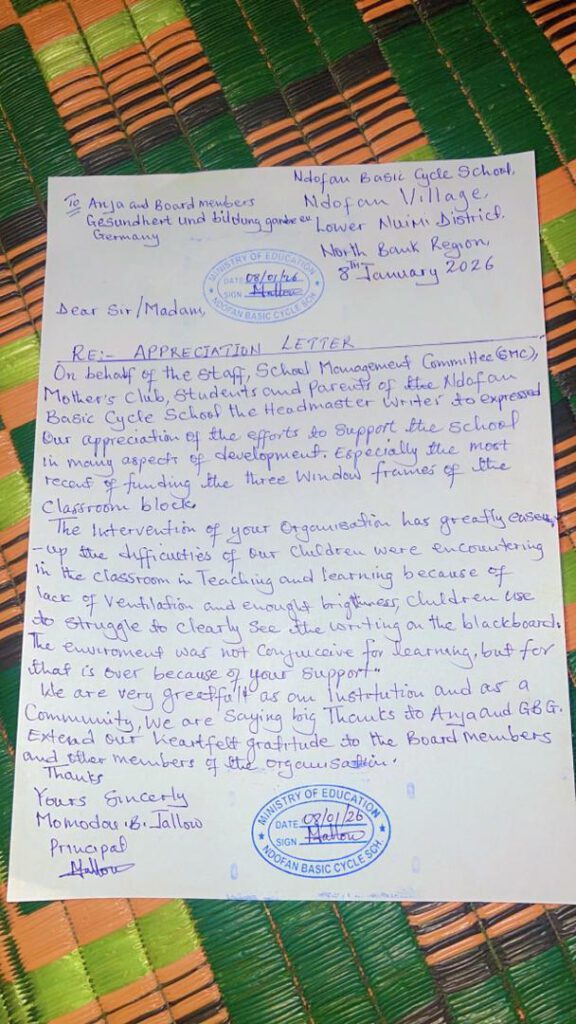 Ndofan Basic Cycle School,
Ndofan Village,
Lower Niumi District,
North Bank Region,
8th January 2026
To Anja and Board members
Gesundhert und bildung gambe en
Germany
MINISTRY OF EDUCATION
DATE 08/01/26
SIGN Mallow
NDOFAN BASIC CYCLE SCH
Dear Sir/Madam,
RE:- APPRECIATION LETTER
On behalf of the Staff, School Management Committee (SMC),
Mother's Club, Students and Parents of the Ndofan
Basic Cycle School the Headmaster writes to expressed
Our appreciation of the efforts to support the School
in many aspects of development. Especially the most
recent of funding the three window frames of the
Classroom block.
The Intervention of your Organisation has greatly ease
-up the difficulties of our Children were encountering
in the classroom in Teaching and learning because of
lack of Ventilation and enought brightness, Children use
to struggle to clearly see the writing on the blackboard.
The enviroment was not Conjuceive for learning, but for
that is over because of your support.
We are very greatfall as our Institution and as a
Community, We are Saying big Thanks to Anja and GBG.
Extend our heartfelt gratitude to the Board Members
and other members of the organisation.
Thanks
Yours Sincerly
Momodou .B. Jallow
Principal
Mallow
MINISTRY OF EDUCATION
DATE 08/01/26
SIGN Mallow
NDOFAN BASIC CYCLE SCH